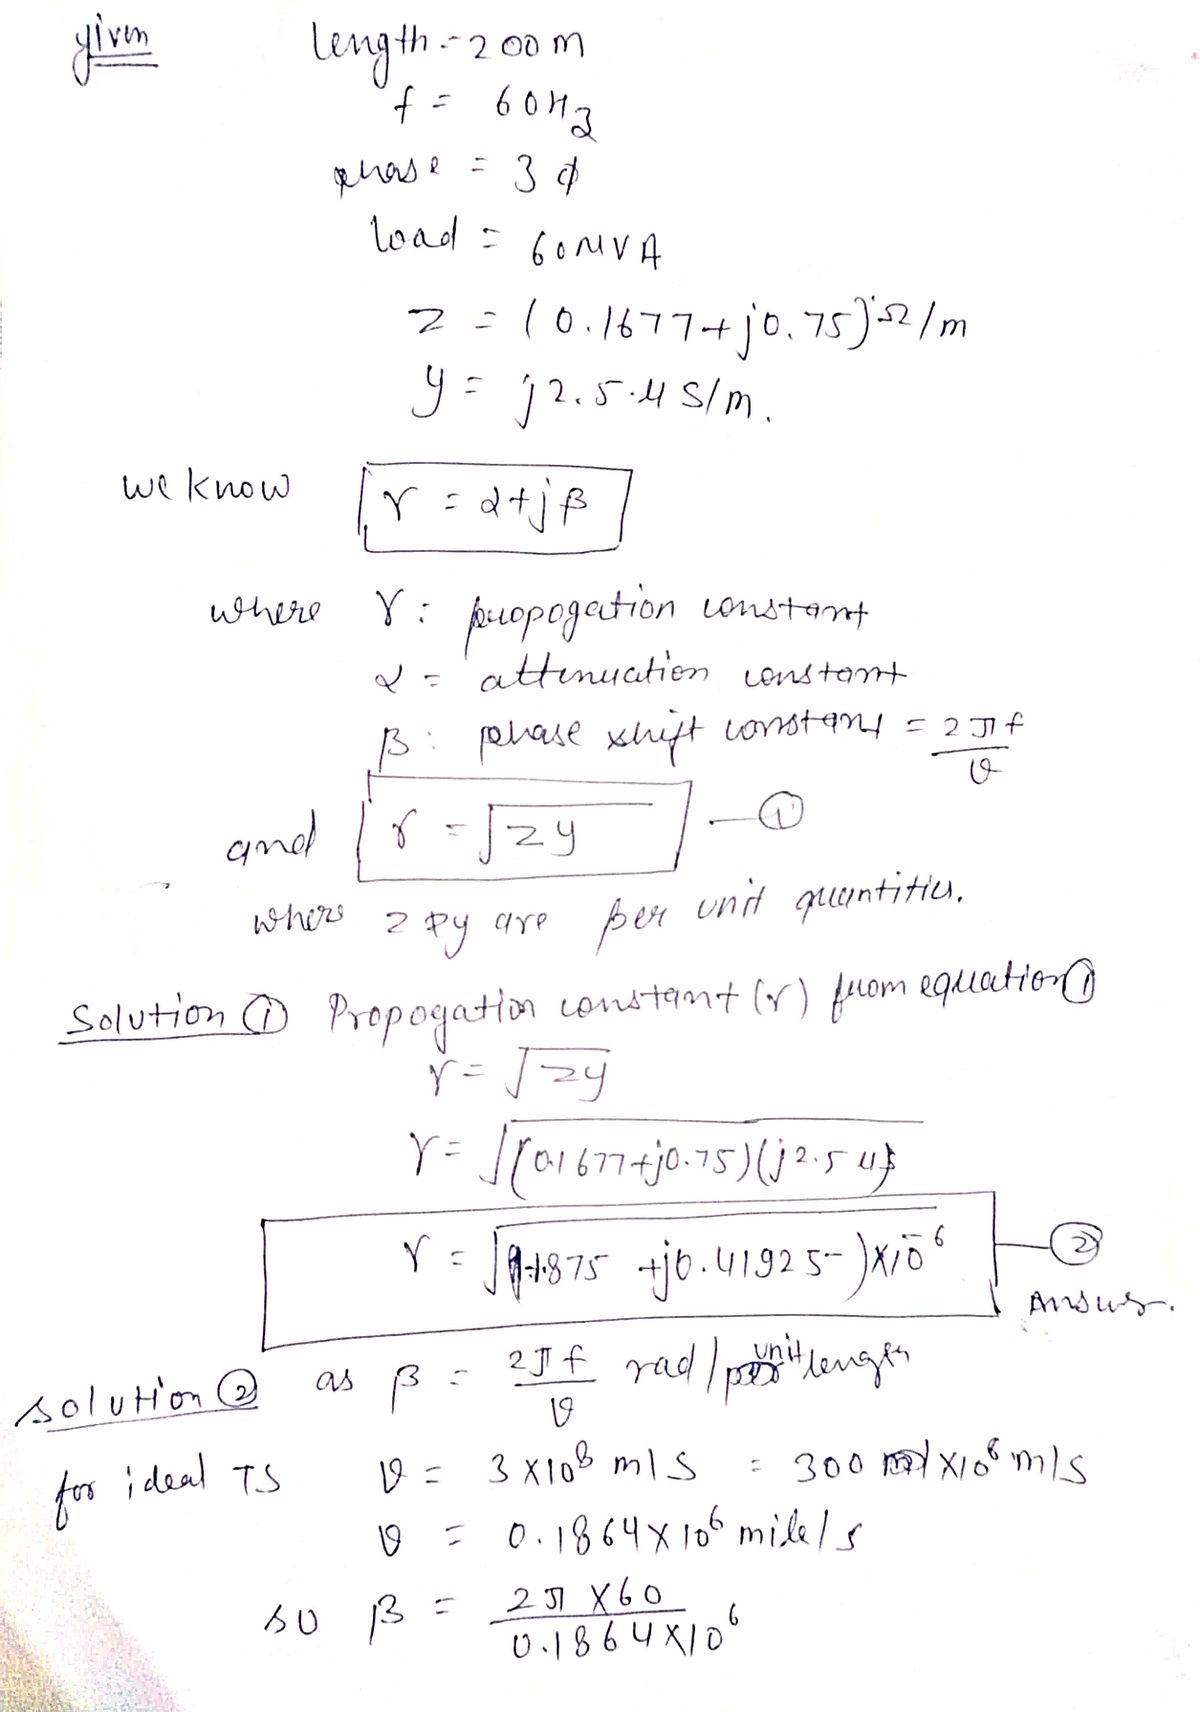 given length - 200m
f = 60Hz
phase = 3 ϕ
load = 60MVA
z = (0.1677+j0.75)Ω/m
y = j2.5.μ S/m.
we know γ = α+jβ
where γ: propogation constant
α = attenuation constant
β: phase shift constant = 2πf/v
and γ = √zy —①
where z & y are per unit quantities.
Solution ① Propogation constant (γ) from equation①
γ = √zy
γ = √(0.1677+j0.75)(j2.5 μ)
γ = √(-1.875 +j0.41925)×10⁻⁶ —②
Answer.
solution ② as β = 2πf/v rad/unit length
for ideal TS v = 3×10⁸ m/s = 300 ×10⁶ m/s
v = 0.1864×10⁶ mile/s
so β = 2π×60/0.1864×10⁶